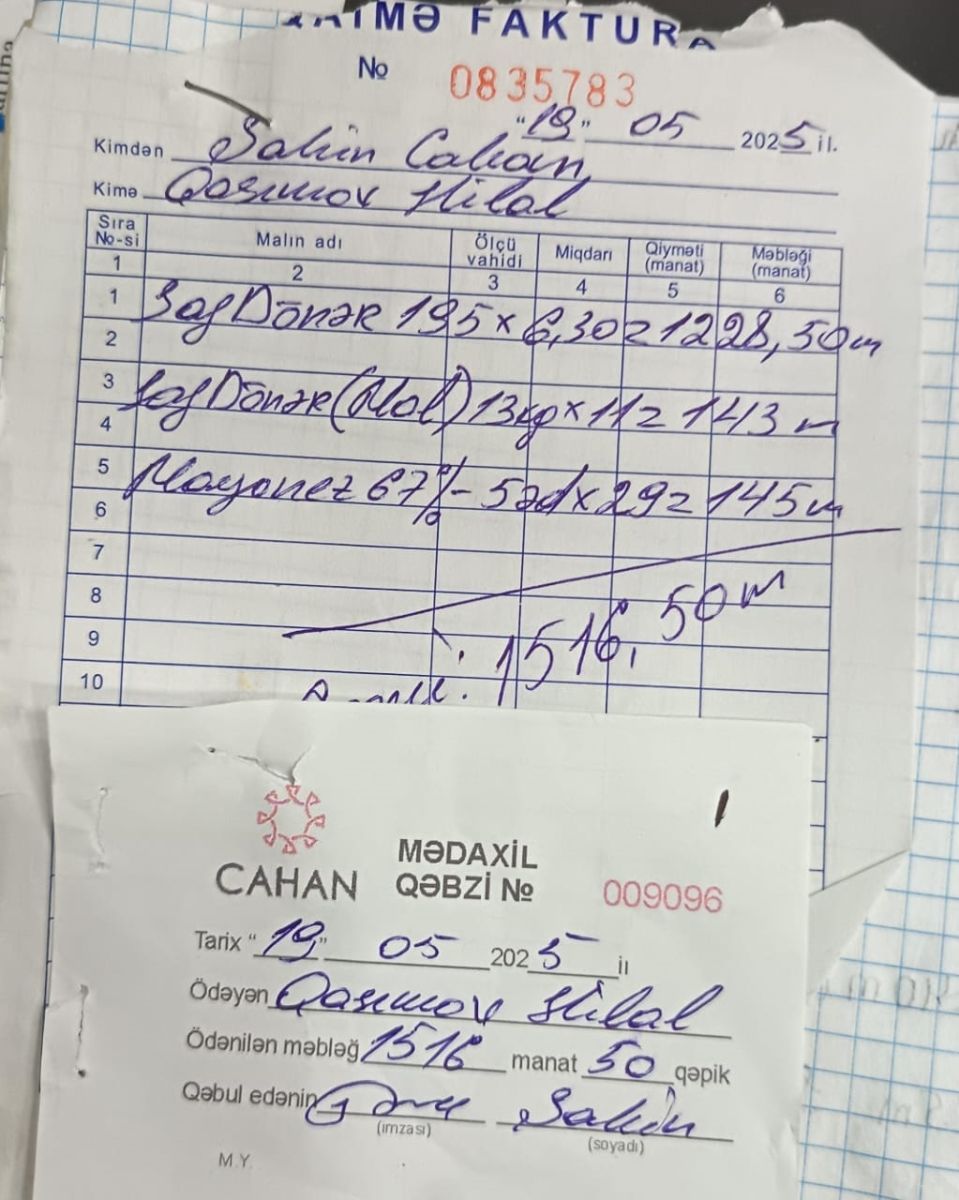 FAKTURA
№ 0835783
"19" 05 2025 il.
Kimdən Şahin Cahan
Kimə Qasımov Hilal
Sıra №-si Malın adı Ölçü vahidi Miqdarı Qiyməti (manat) Məbləği (manat)
1 2 3 4 5 6
1 Saf Dönər 195 x 6,30 = 1228,50 m
2
3 Saf Dönər (Mal) 13 kg x 11 = 143 m
4
5 Mayonez 67% - 5 əd x 29 = 145 m
6
7
8
9 1516,50 m
10
CAHAN
MƏDAXİL QƏBZİ № 009096
Tarix "19" 05 2025 il
Ödəyən Qasımov Hilal
Ödənilən məbləğ 1516 manat 50 qəpik
Qəbul edənin Şahin
(imzası) (soyadı)
M.Y.